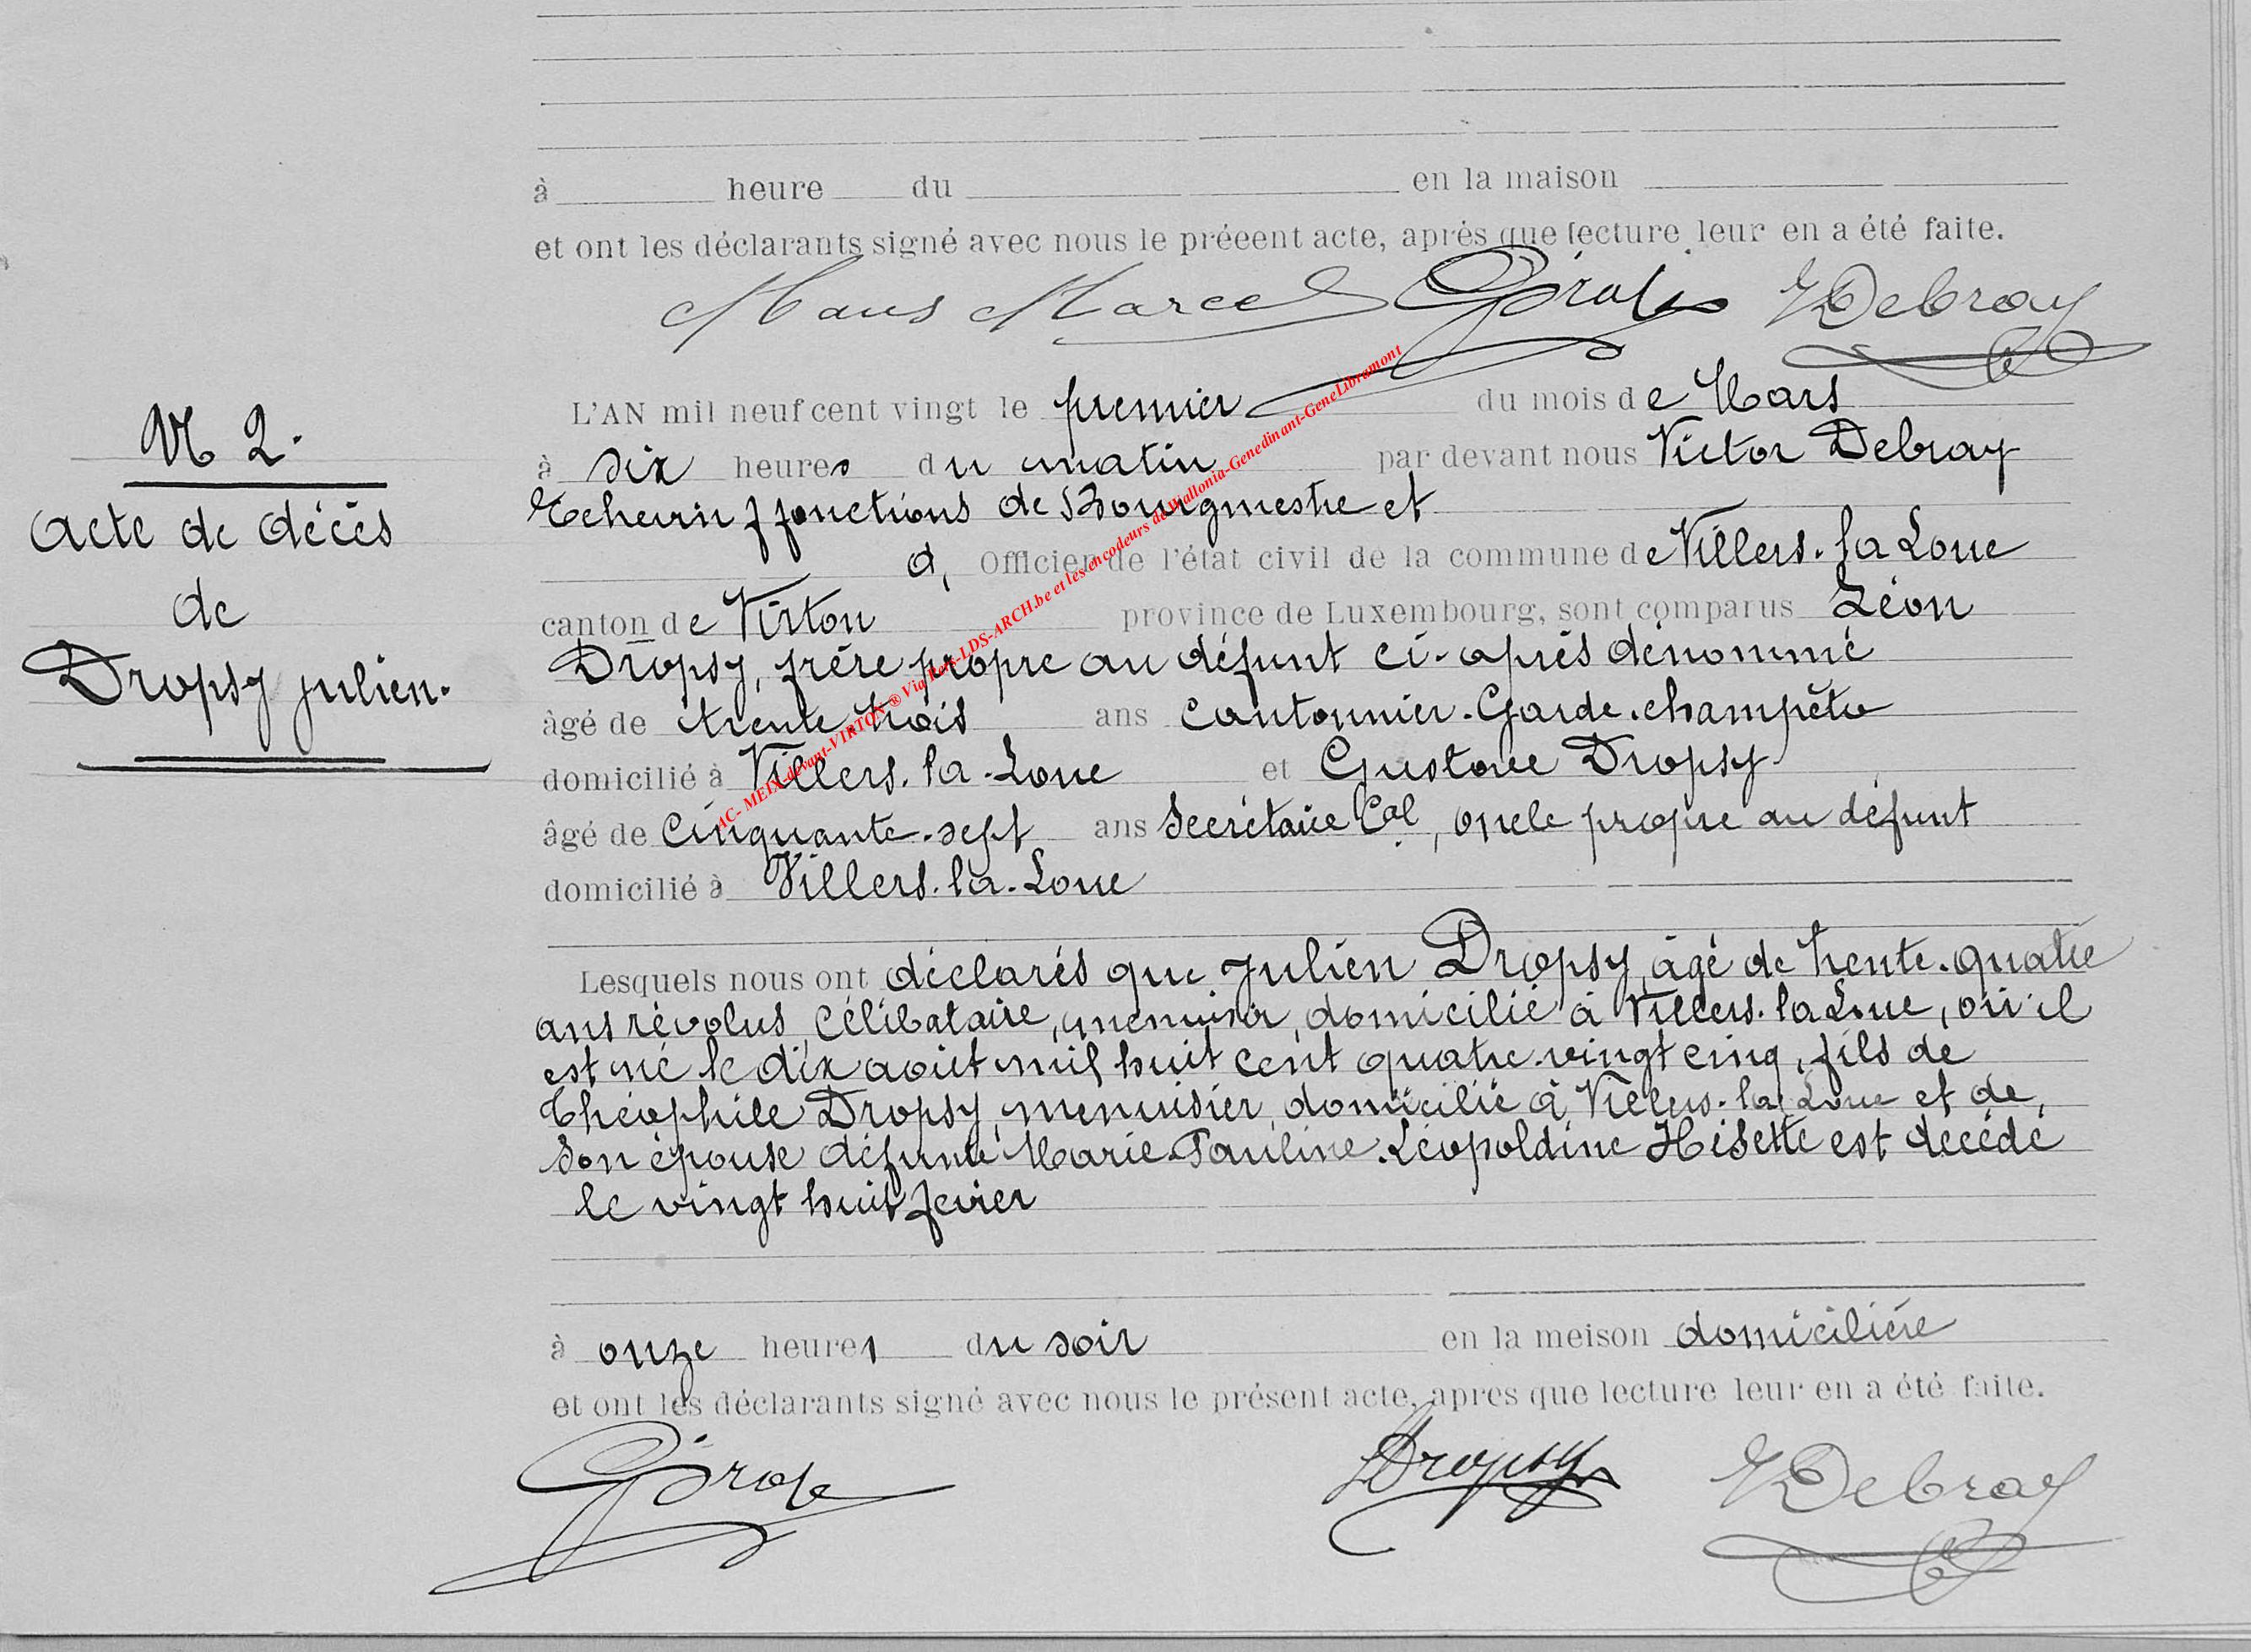 à heure du en la maison
et ont les déclarants signé avec nous le préeent acte, après que lecture leur en a été faite.
Maus Marcel VDebray
L'AN mil neuf cent vingt le premier du mois de Mars
N 2.
à six heures du matin par devant nous Victor Debray
Echevin f fonctions de Bourgmestre et
Acte de décès
d, Officier de l'état civil de la commune de Villers-la Loue
de
canton de Virton province de Luxembourg, sont comparus Léon
Dropsy, frère propre au défunt ci-après dénommé
Dropsy julien.
âgé de trente trois ans Cantonnier-Garde-champêtre
domicilié à Villers-la-Loue et Gustave Dropsy
âgé de Cinquante-sept ans Secrétaire Cal, oncle propre au défunt
domicilié à Villers-la-Loue
AC- MEIX-devant-VIRTON ® Via Rets-LDS-ARCH.be et les encodeurs de Wallonia-Genedinant-GeneLibramont
Lesquels nous ont déclarés que Julien Dropsy, agé de trente-quatre
ans révolus, célibataire, menuisier, domicilié à Villers-la Loue, où il
est né le dix août mil huit cent quatre-vingt cinq, fils de
Théophile Dropsy, menuisier, domicilié à Villers-la Loue et de
son épouse défunte Marie-Pauline-Léopoldine Hisette est décédé
le vingt huit fevier
à onze heures du soir en la meison domicilière
et ont les déclarants signé avec nous le présent acte, apres que lecture leur en a été faite.
Dropsy VDebray